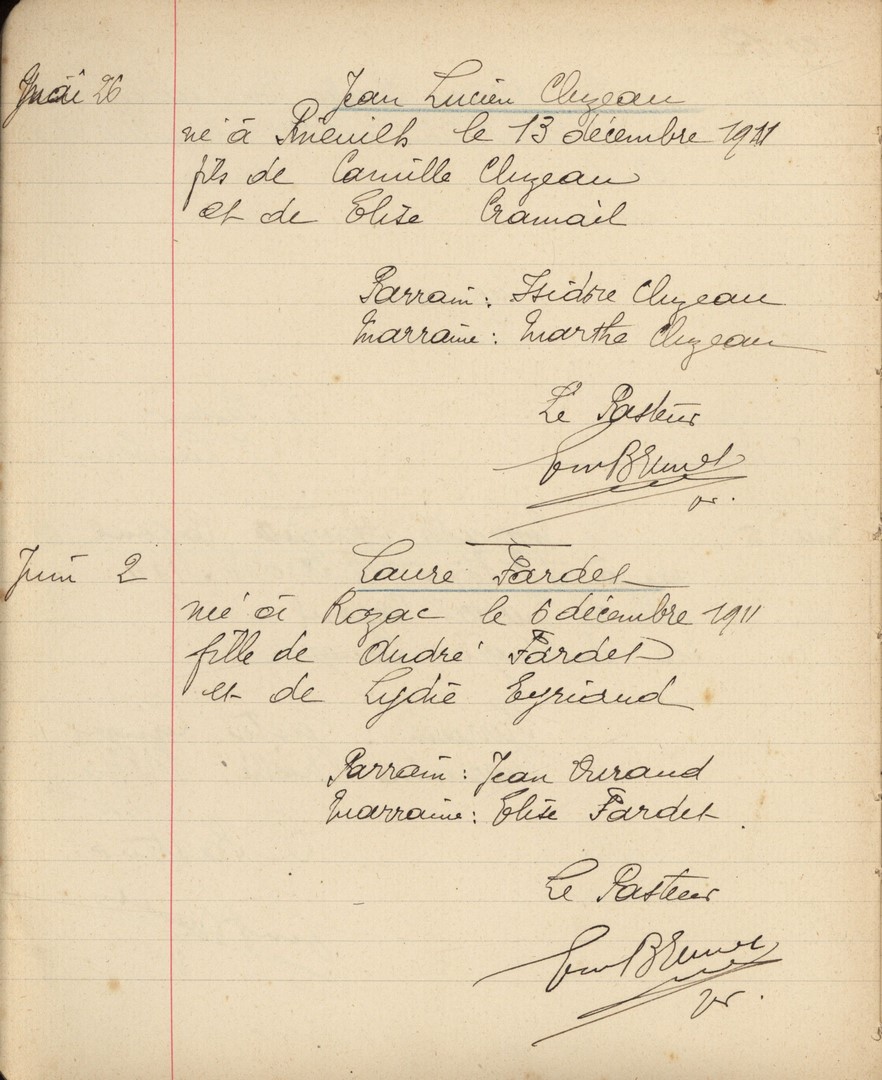 Mai 26
Jean Lucien Cluzeau
né à le 13 décembre 1911
fils de Camille Cluzeau
et de Elise Cramail
Parrain : Isidore Cluzeau
Marraine : Marthe Cluzeau
Le Pasteur
Brunet
Juin 2
Laure Fardet
né à Rozac le 6 décembre 1911
fille de André Fardet
et de Lydie Eyriaud
Parrain : Jean Durand
Marraine : Elise Fardet
Le Pasteur
Brunet